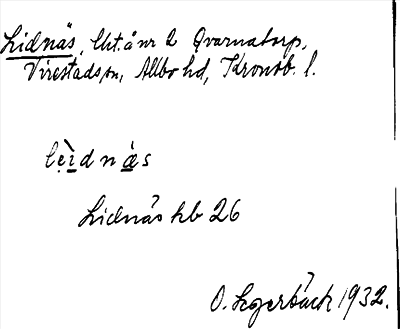 Lidnäs, lht. å nr 2 Qvarnatorp,
Virestads sn, Allbo hd, Kronob. l.
lẹìdnæ̀s
Lidnäs hb 26
O. Segerbäck 1932.